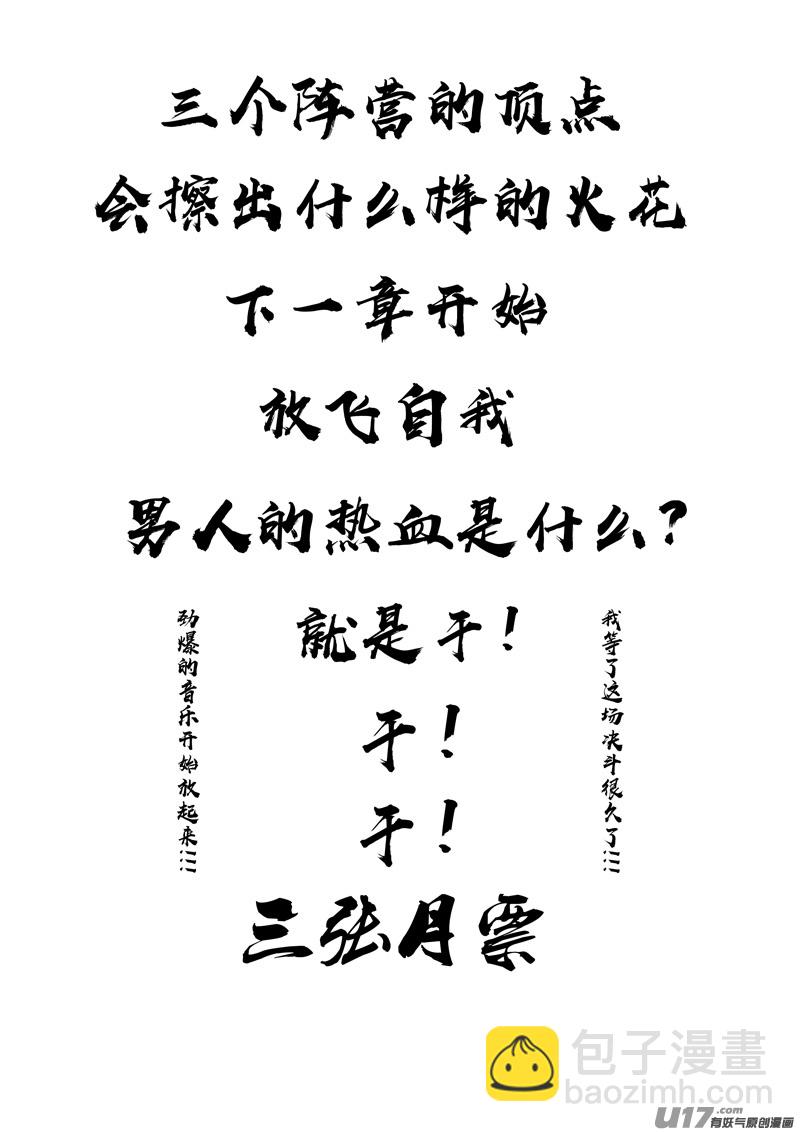 三个阵营的顶点
会擦出什么样的火花
下一章开始
放飞自我
男人的热血是什么？
就是干！
干！
干！
三张月票
劲爆的音乐开始放起来！！！
我等了这场决斗很久了！！！
包子漫畫
baozimh.com
U17.com
有妖气原创漫画